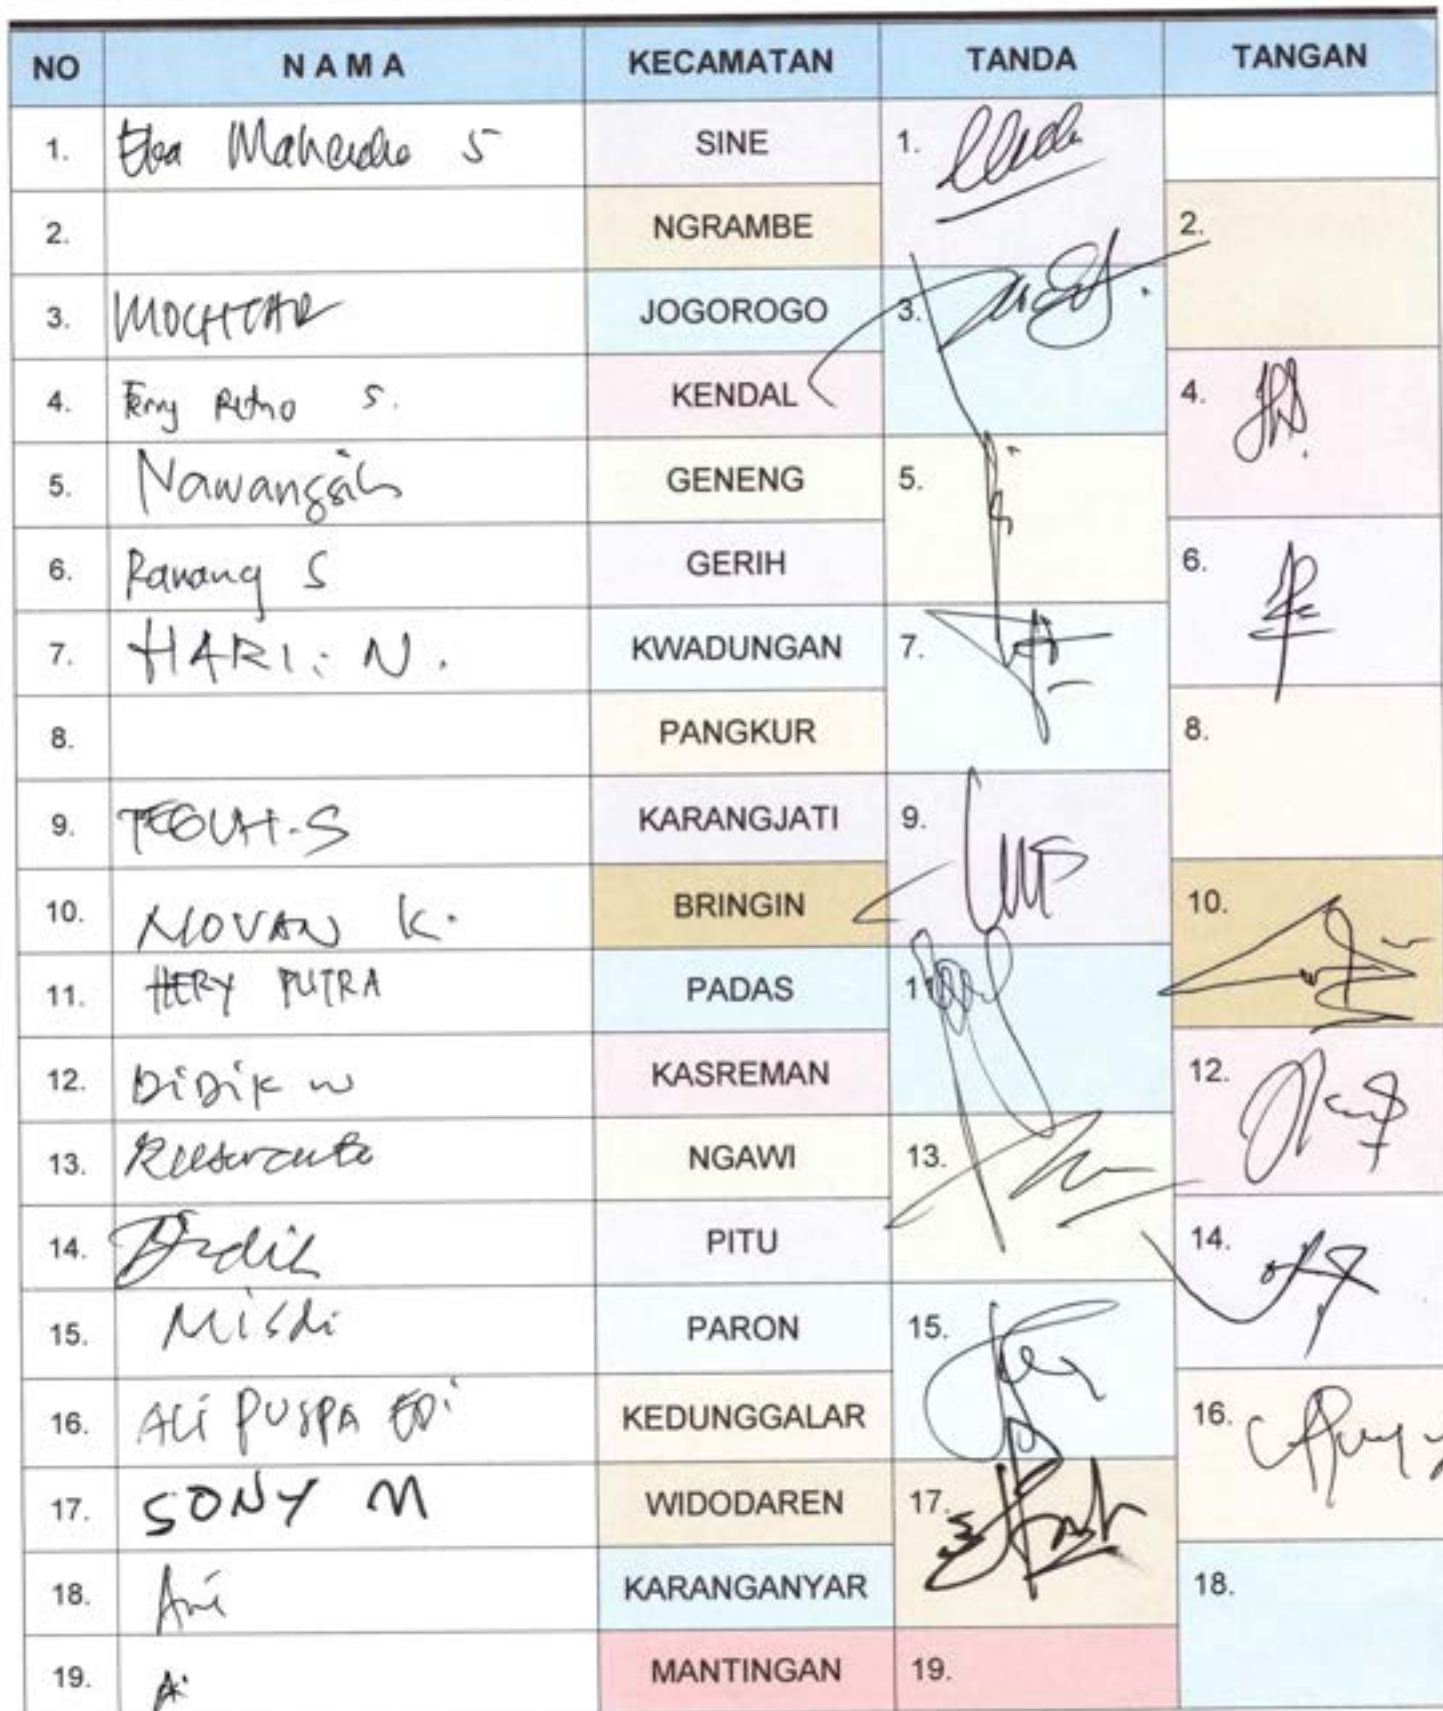 NO NAMA KECAMATAN TANDA TANGAN
1. Eka Mahendra S SINE 1.
2. NGRAMBE 2.
3. MOCHTAR JOGOROGO 3.
4. Ferry Retno S. KENDAL 4.
5. Nawangsih GENENG 5.
6. Ranang S GERIH 6.
7. HARI. N. KWADUNGAN 7.
8. PANGKUR 8.
9. TEGUH.S KARANGJATI 9.
10. NOVAN K. BRINGIN 10.
11. HERY PUTRA PADAS 11.
12. DiDiK w KASREMAN 12.
13. NGAWI 13.
14. PITU 14.
15. Misdi PARON 15.
16. ALi PUSPA EDi KEDUNGGALAR 16.
17. SONY M WIDODAREN 17.
18. Ari KARANGANYAR 18.
19. MANTINGAN 19.